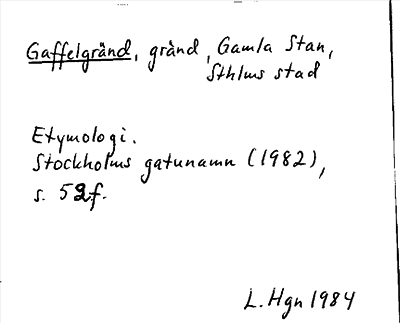 Gaffelgränd, gränd, Gamla Stan,
Sthlms stad
Etymologi.
Stockholms gatunamn (1982),
s. 52f.
L. Hgn 1984